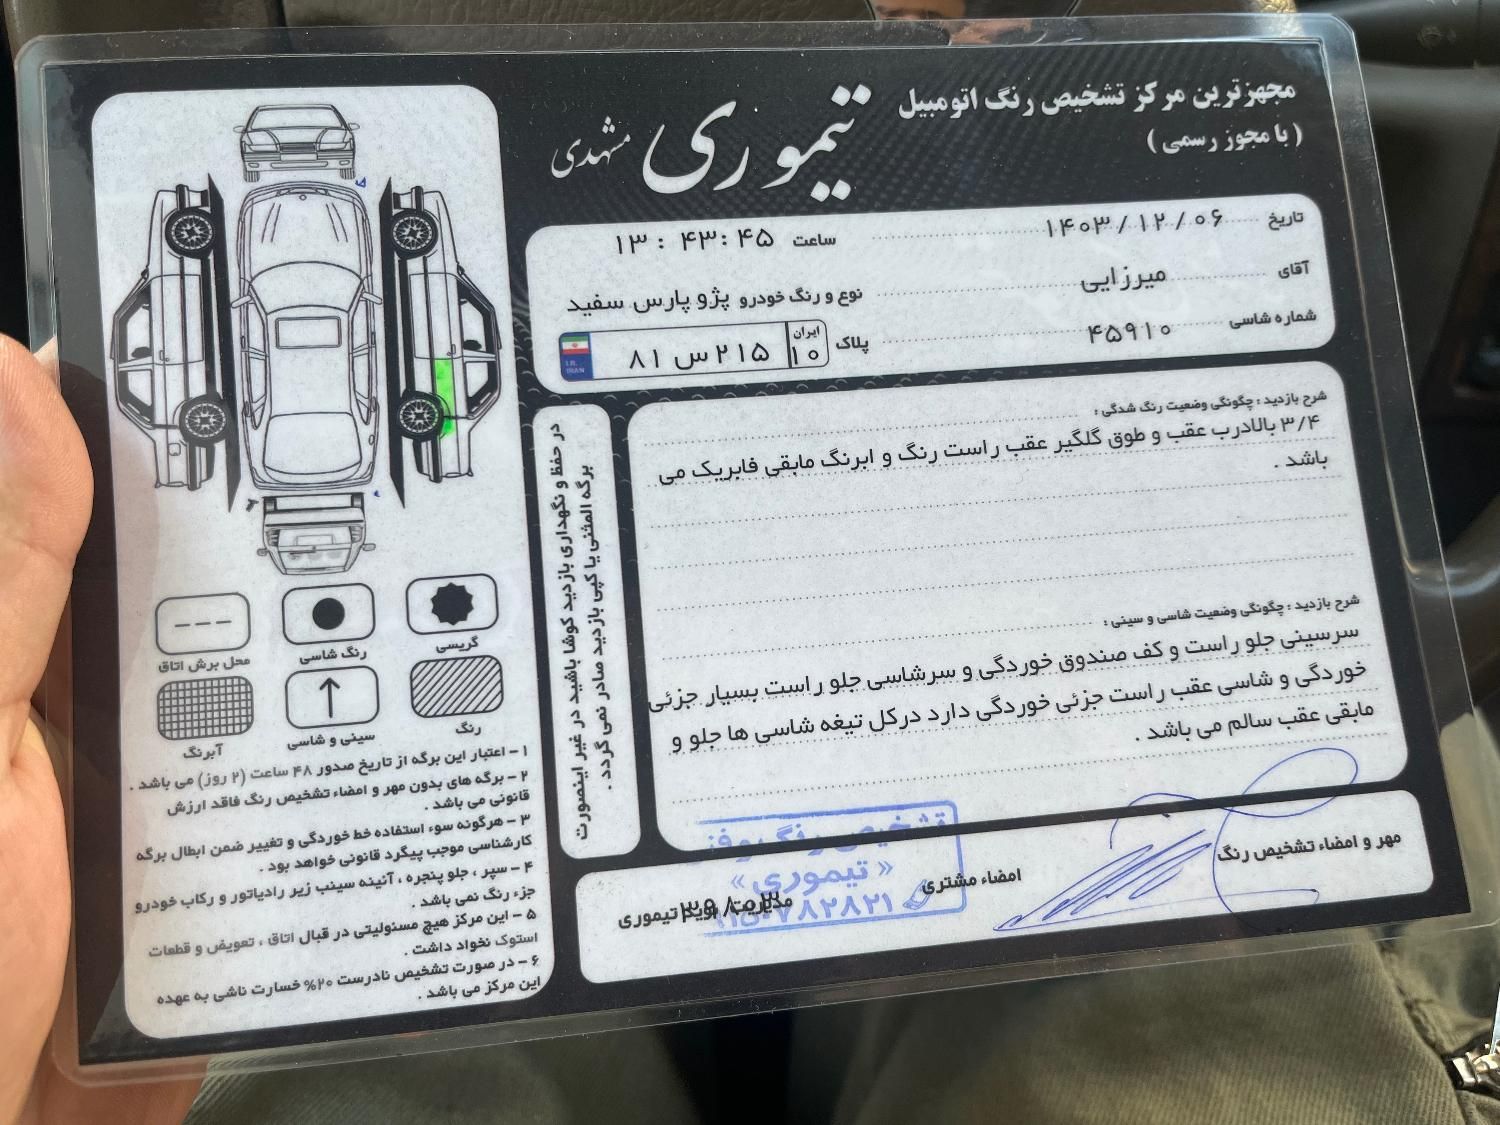 مجهزترین مرکز تشخیص رنگ اتومبیل
( با مجوز رسمی )
تیموری مشهدی
تاریخ ۱۴۰۳/۱۲/۰۶
ساعت ۱۳:۴۳:۴۵
آقای میرزایی
نوع و رنگ خودرو پژو پارس سفید
شماره شاسی ۴۵۹۱۰
پلاک ایران ۱۰ ۲۱۵ س ۸۱
I.R. IRAN
شرح بازدید : چگونگی وضعیت رنگ شدگی :
۳/۴ بالادرب عقب و طوق گلگیر عقب راست رنگ و ابرنگ مابقی فابریک می
باشد .
شرح بازدید : چگونگی وضعیت شاسی و سینی :
سرسینی جلو راست و کف صندوق خوردگی و سرشاسی جلو راست بسیار جزئی
خوردگی و شاسی عقب راست جزئی خوردگی دارد درکل تیغه شاسی ها جلو و
مابقی عقب سالم می باشد .
مهر و امضاء تشخیص رنگ
امضاء مشتری
مدیریت نوید تیموری
تشخیص رنگ و فنی
« تیموری »
در حفظ و نگهداری بازدید کوشا باشید در غیر اینصورت
برگه المثنی یا کپی بازدید صادر نمی گردد .
گریسی
رنگ شاسی
محل برش اتاق
رنگ
سینی و شاسی
آبرنگ
۱ - اعتبار این برگه از تاریخ صدور ۴۸ ساعت (۲ روز) می باشد .
۲ - برگه های بدون مهر و امضاء تشخیص رنگ فاقد ارزش
قانونی می باشد .
۳ - هرگونه سوء استفاده خط خوردگی و تغییر ضمن ابطال برگه
کارشناسی موجب پیگرد قانونی خواهد بود .
۴ - سپر ، جلو پنجره ، آئینه سینب زیر رادیاتور و رکاب خودرو
جزء رنگ نمی باشد .
۵ - این مرکز هیچ مسئولیتی در قبال اتاق ، تعویض و قطعات
استوک نخواد داشت .
۶ - در صورت تشخیص نادرست ۲۰% خسارت ناشی به عهده
این مرکز می باشد .